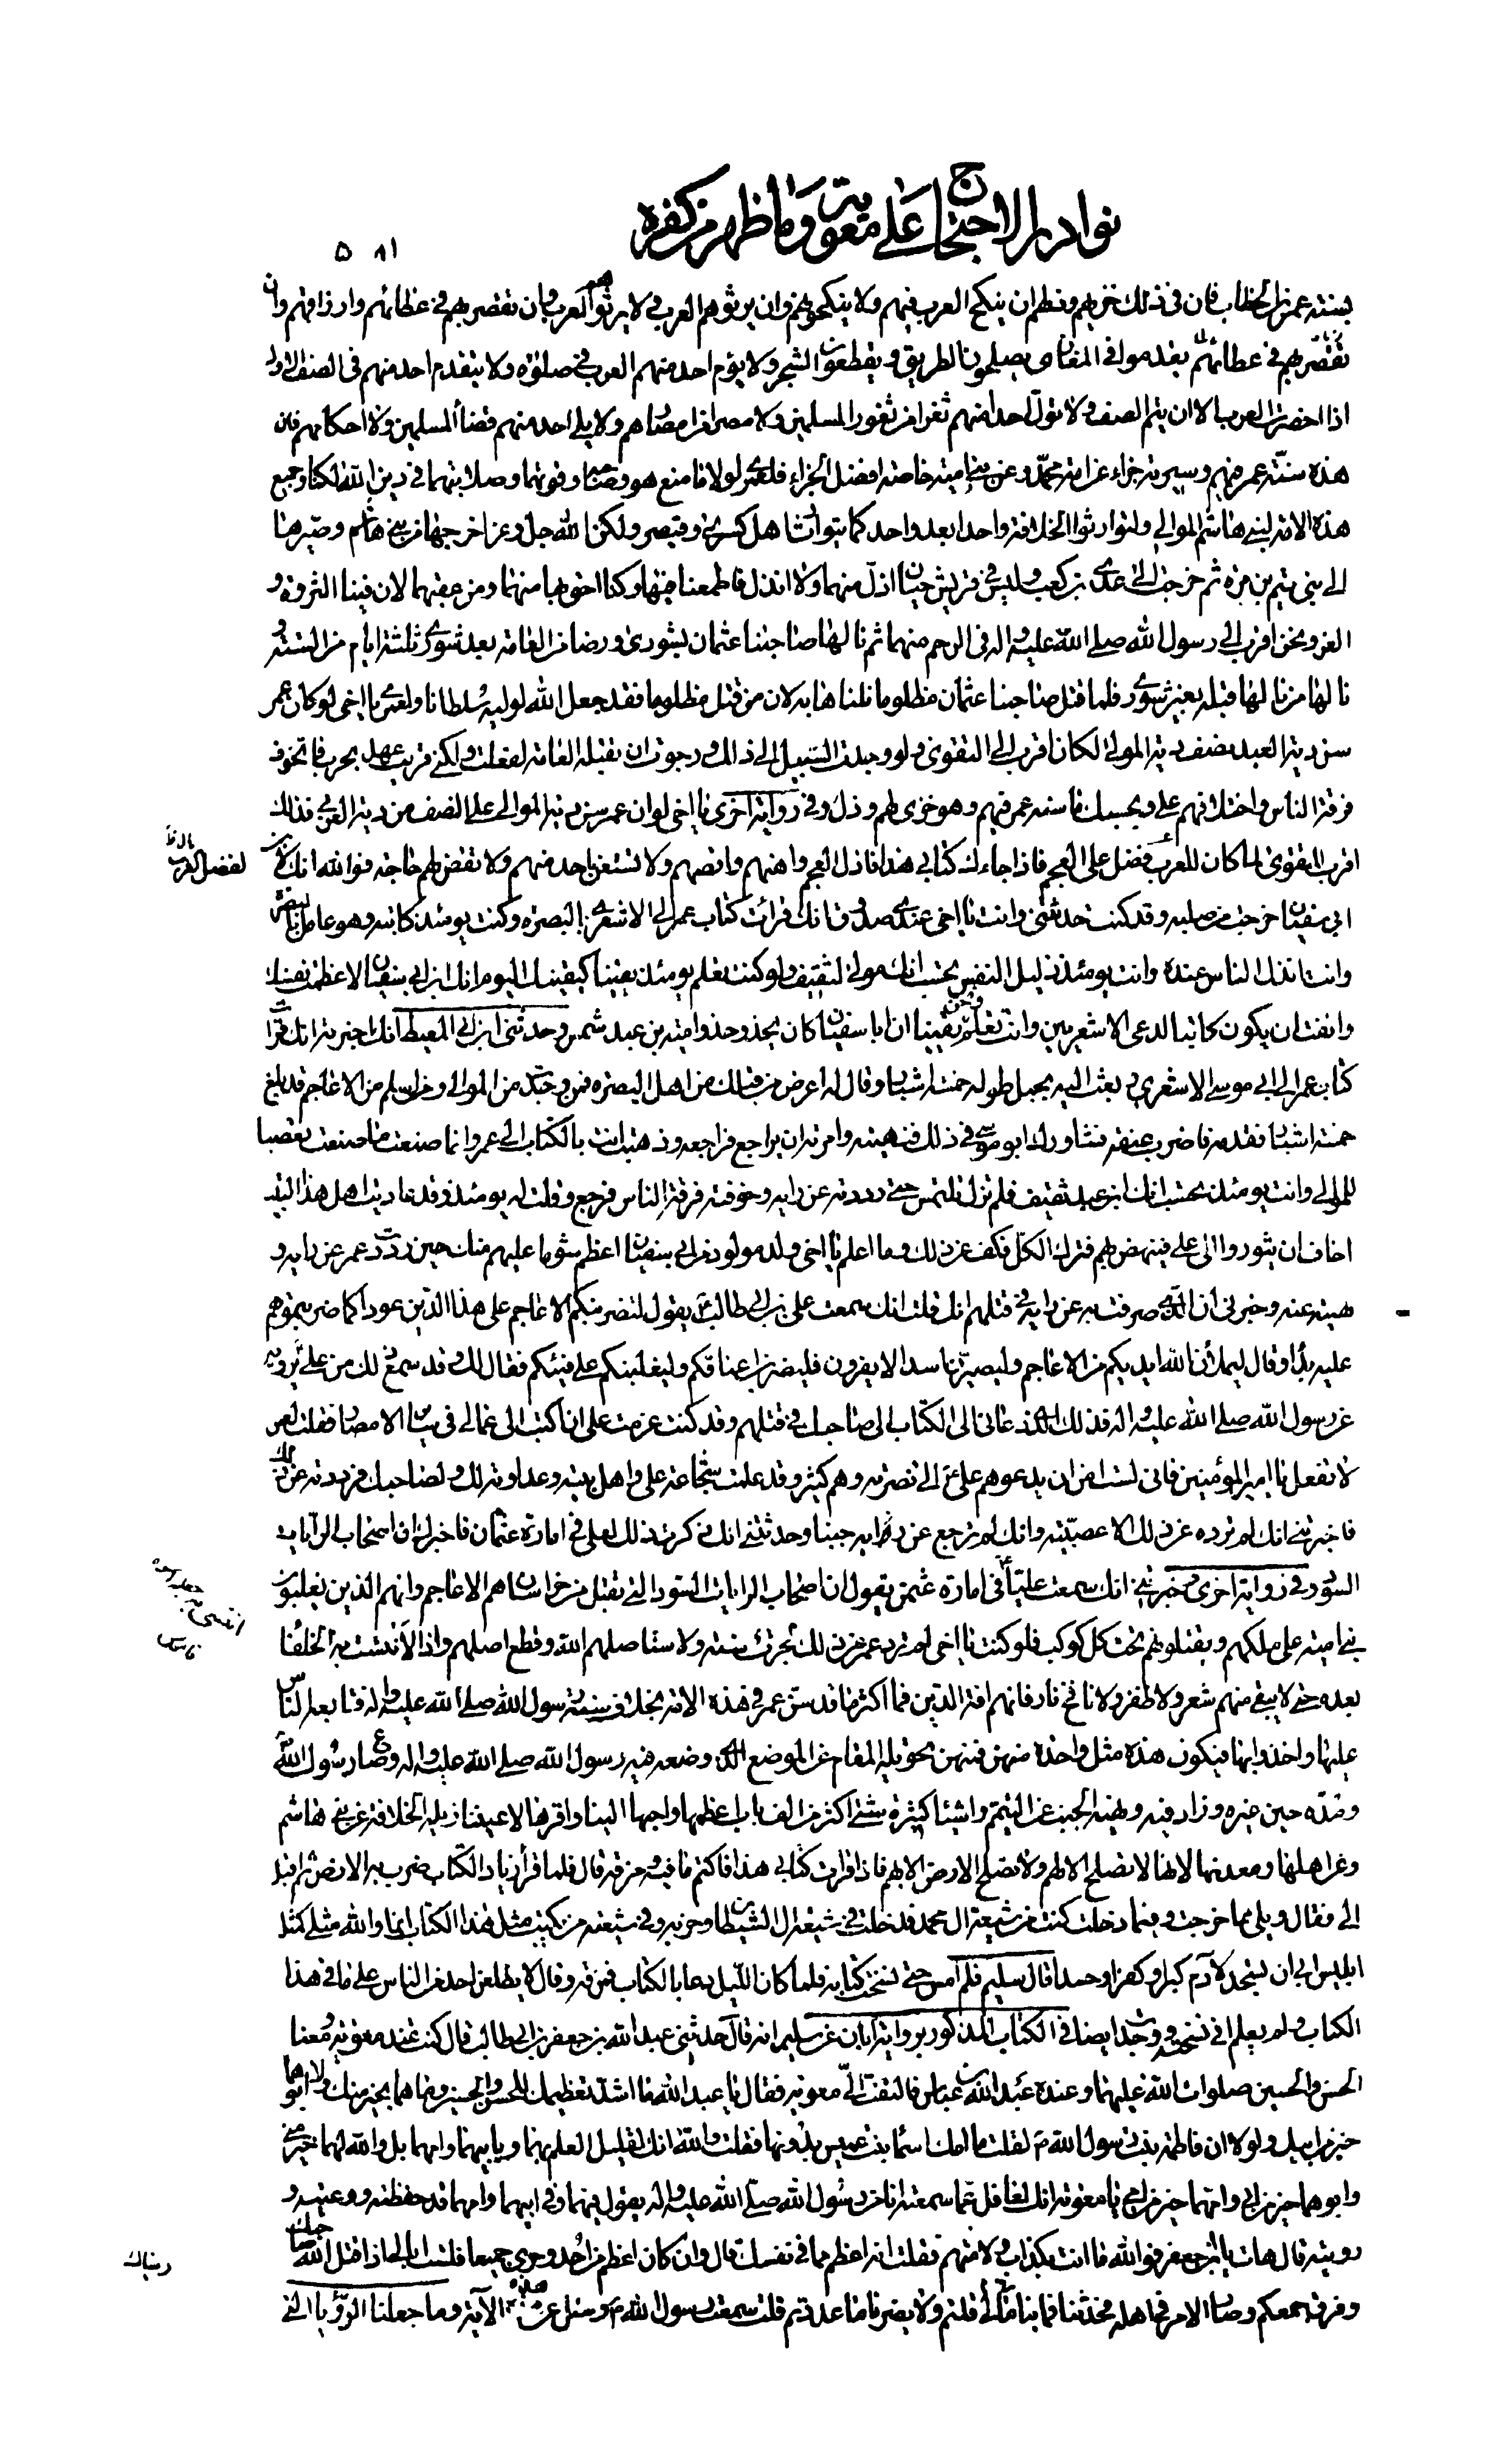 نوادر الاحتجاج على معوية وما ظهر من كفره
۵۸۱
بسنة عمر بن الخطاب فان في ذلك خزيهم وذلهم ان ينكح العرب فيهم ولا ينكحوهم وان يرثوهم العرب ولا يرثوا العرب وان تقصر بهم في عطائهم وارزاقهم وان
تقصر بهم في عطائهم يقدموا في المغازي يصلحون الطريق ويقطعون الشجر ولا يؤم احد منهم العرب في صلوة ولا يتقدم احد منهم في الصف الاول
اذا احضرت العرب الا ان يتم الصف ولا تول احدا منهم ثغرا من ثغور المسلمين ولا مصرا من امصارهم ولا يلي احد منهم قضاء المسلمين ولا احكامهم فان
هذه سنة عمر فيهم وسيرته جزاه عن امة محمد وعن بني امية خاصة افضل الجزاء فلعمري لولا ما صنع هو وصاحبه وقوتهما وصلابتهما في دين الله لكنا وجميع
هذه الامة لبني هاشم الموالي ولتوارثوا الخلافة واحدا بعد واحد كما يتوارث اهل كسرى وقيصر ولكن الله جل وعز اخرجها من بني هاشم وصيرها
الى بني تيم بن مرة ثم خرجت الى عدي بن كعب وليس في قريش حيان اذل منهما ولا انذل فاطمعنا فيها وكنا احق بها منهما ومن عقبهما لان فينا الثروة و
العز ونحن اقرب الى رسول الله صلى الله عليه واله في الرحم منهما ثم نالها صاحبنا عثمان بشورى ورضا من العامة بعد شورى ثلثة ايام من الستة و
نالها من نالها قبله بغير شورى فلما قتل صاحبنا عثمان مظلوما نلناها به لان من قتل مظلوما فقد جعل الله لوليه سلطانا ولعمري يا اخي لو كان عمر
سن دية العبد نصف دية المولى لكان اقرب الى التقوى ولو وجدت السبيل الى ذلك ورجوت ان تقبله العامة لفعلت ولكني قريب عهد بحرب فاتخوف
فرقة الناس واختلافهم علي وبحسبك ما سنه عمر فيهم وهو خزي لهم وذل وفي رواية اخرى يا اخي لو ان عمر سن دية الموالي على النصف من دية العرب فذلك
اقرب التقوى لما كان للعرب فضل على العجم فاذا جاءك كتابي هذا فاذل العجم واهنهم واقصهم ولا تستعن باحد منهم ولا تقض لهم حاجة فوالله انك لابن
لفضل العرب
ابي سفيان خرجت من صلبه وقد كنت حدثتني وانت يا اخي عندي صدوق انك قرات كتاب عمر الى الاشعري بالبصرة وكنت يومئذ كاتبه وهو عامل بالبصرة
وانت انذل الناس عنده وانت يومئذ ذليل النفس تحسب انك مولى لثقيف ولو كنت تعلم يومئذ يقينا كيقينك اليوم انك ابن ابي سفيان لاعظمت نفسك
وانفت ان يكون كاتبا لدعي الاشعريين وانت تعلم يقينا ان ابا سفيان كان يحذو حذو امية بن عبد شمس وحدثني ابن ابي المعيط انك اخبرته انك قرات
كتاب عمر الى ابي موسى الاشعري وبعث اليه بحبل طوله خمسة اشبار وقال له اعرض من قبلك من اهل البصرة فمن وجدت من الموالي ومن اسلم من الاعاجم قد بلغ
خمسة اشبار فقدمه فاضرب عنقه فشاورك ابو موسى في ذلك فنهيته وامرته ان يراجع فراجعه وذهبت انت بالكتاب الى عمر وانما صنعت ما صنعت تعصبا
للموالي وانت يومئذ تحسب انك ابن عبد ثقيف فلم تزل تلتمس حتى رددته عن رايه وخوفته فرقة الناس فرجع وقلت له يومئذ وقد عاديت اهل هذا البيت
اخاف ان يثوروا الى علي فينهض بهم فتزل الكل فكف عن ذلك وما اعلم يا اخي ولد مولود من ابي سفيان اعظم شوما عليهم منك حين رددت عمر عن رايه و
نهيته عنه وخبرني ان الذي صرفت به عن رايه في قتلهم انك قلت انك سمعت علي بن ابي طالب يقول لتضربنكم الاعاجم على هذا الدين عودا كما ضربتموهم
عليه بدءا وقال ليملأن الله ايديكم من الاعاجم وليصيرن اسدا لا يفرون فليضربن اعناقكم وليغلبنكم على فيئكم فقال لك وقد سمع ذلك من علي يرويه
عن رسول الله صلى الله عليه واله فذلك الذي دعاني الى الكتاب الى صاحبك في قتلهم وقد كنت عزمت على ان اكتب الى عمالي في سائر الامصار فقلت لعمر
لا تفعل يا امير المؤمنين فاني لست امن ان يدعوهم علي الى نصرته وهم كثير وقد علمت شجاعة علي واهل بيته وعداوته لك ولصاحبك فرددته عن ذلك
فاخبرتني انك لم ترده عن ذلك الا عصبية وانك لم ترجع عن رايه جبنا وحدثتني انك ذكرت ذلك لعلي في امارة عثمان فاخبرك ان اصحاب الرايات
السود في رواية اخرى وخبرتني انك سمعت عليا في امارة عثمن يقول ان اصحاب الرايات السود التي تقبل من خراسان هم الاعاجم وانهم الذين يغلبون
بني امية على ملكهم ويقتلونهم تحت كل كوكب فلو كنت يا اخي لم ترد عمر عن ذلك لجرت سنة ولاستاصلهم الله وقطع اصلهم واذا لانتست به الخلفاء
بعده حتى لا يبقى منهم شعر ولا ظفر ولا نافخ نار فانهم افة الدين فما اكثر ما قد سن عمر في هذه الامة بخلاف سنة رسول الله صلى الله عليه واله فتابعه الناس
عليها واخذوا بها فيكون هذه مثل واحدة منهن فمنهن تحويله المقام عن الموضع الذي وضعه فيه رسول الله صلى الله عليه واله وصاع رسول الله
ومده حين غيره وزاد فيه ونهيه الجنب عن التيمم واشياء كثيرة شتى اكثر من الف باب اعظمها واحبها الينا واقرها لاعيننا زيله الخلافة عن بني هاشم
وعن اهلها ومعدنها لانها لا تصلح الا لهم ولا تصلح الارض الا بهم فاذا قرات كتابي هذا فاكتم ما فيه ومزقه قال فلما قرأ زياد الكتاب ضرب به الارض ثم اقبل
الي فقال ويلي مما خرجت وفيما دخلت كنت من شيعة ال محمد فدخلت في شيعة ال الشيطان وحزبه وفي شيعة من يكتب مثل هذا الكتاب انما والله مثلي كمثل
ابليس ابى ان يسجد لادم كبرا وكفرا وحسدا قال سليم فلم امس حتى نسخت كتابه فلما كان الليل دعا بالكتاب فمزقه وقال لا يطلعن احد من الناس على ما في هذا
الكتاب ولم يعلم اني نسخته ووجدت ايضا في الكتاب المذكور برواية ابان عن سليم انه قال حدثني عبد الله بن جعفر بن ابي طالب قال كنت عند معوية ومعنا
الحسن والحسين صلوات الله عليهما وعنده عبد الله بن عباس فالتفت الي معوية فقال يا عبد الله ما اشد تعظيمك للحسن والحسين وما هما بخير منك ولا ابوهما
خير من ابيك ولولا ان فاطمة بنت رسول الله ص لقلت ما امك اسماء بنت عميس بدونها فقلت والله انك لقليل العلم بهما وبابيهما وامهما بل والله لهما خير مني
وابوهما خير من ابي وامهما خير من امي يا معوية انك لغافل عما سمعته انا من رسول الله صلى الله عليه واله يقول فيهما وفي ابيهما وامهما قد حفظته ووعيته و
رويته قال هات يا ابن جعفر فوالله ما انت بكذاب ولا متهم فقلت انه اعظم مما في نفسك قال وان كان اعظم من احد وحرى جميعا فلست ابالي اذا قتل الله صاحبك
وفرق جمعكم وصار الامر في اهله فحدثنا فما نبالي ما قلتم ولا يضرنا ما عددتم قلت سمعت رسول الله ص وسئل عن هذه الآية وما جعلنا الرؤيا التي